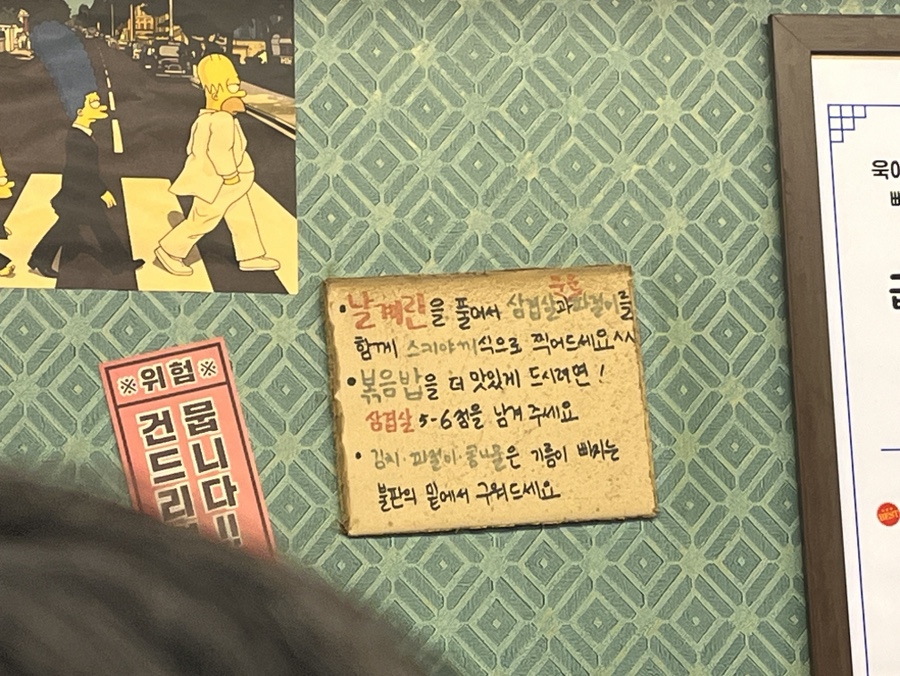 ※위험※
건드리
뭅니다!!
구운
• 날계란을 풀어서 삼겹살과 파절이를
함께 스키야끼식으로 찍어드세요^^
• 볶음밥을 더 맛있게 드시려면!
삼겹살 5-6점을 남겨주세요
• 김치.파절이.콩나물은 기름이 빠지는
불판의 밑에서 구워드세요
BEST